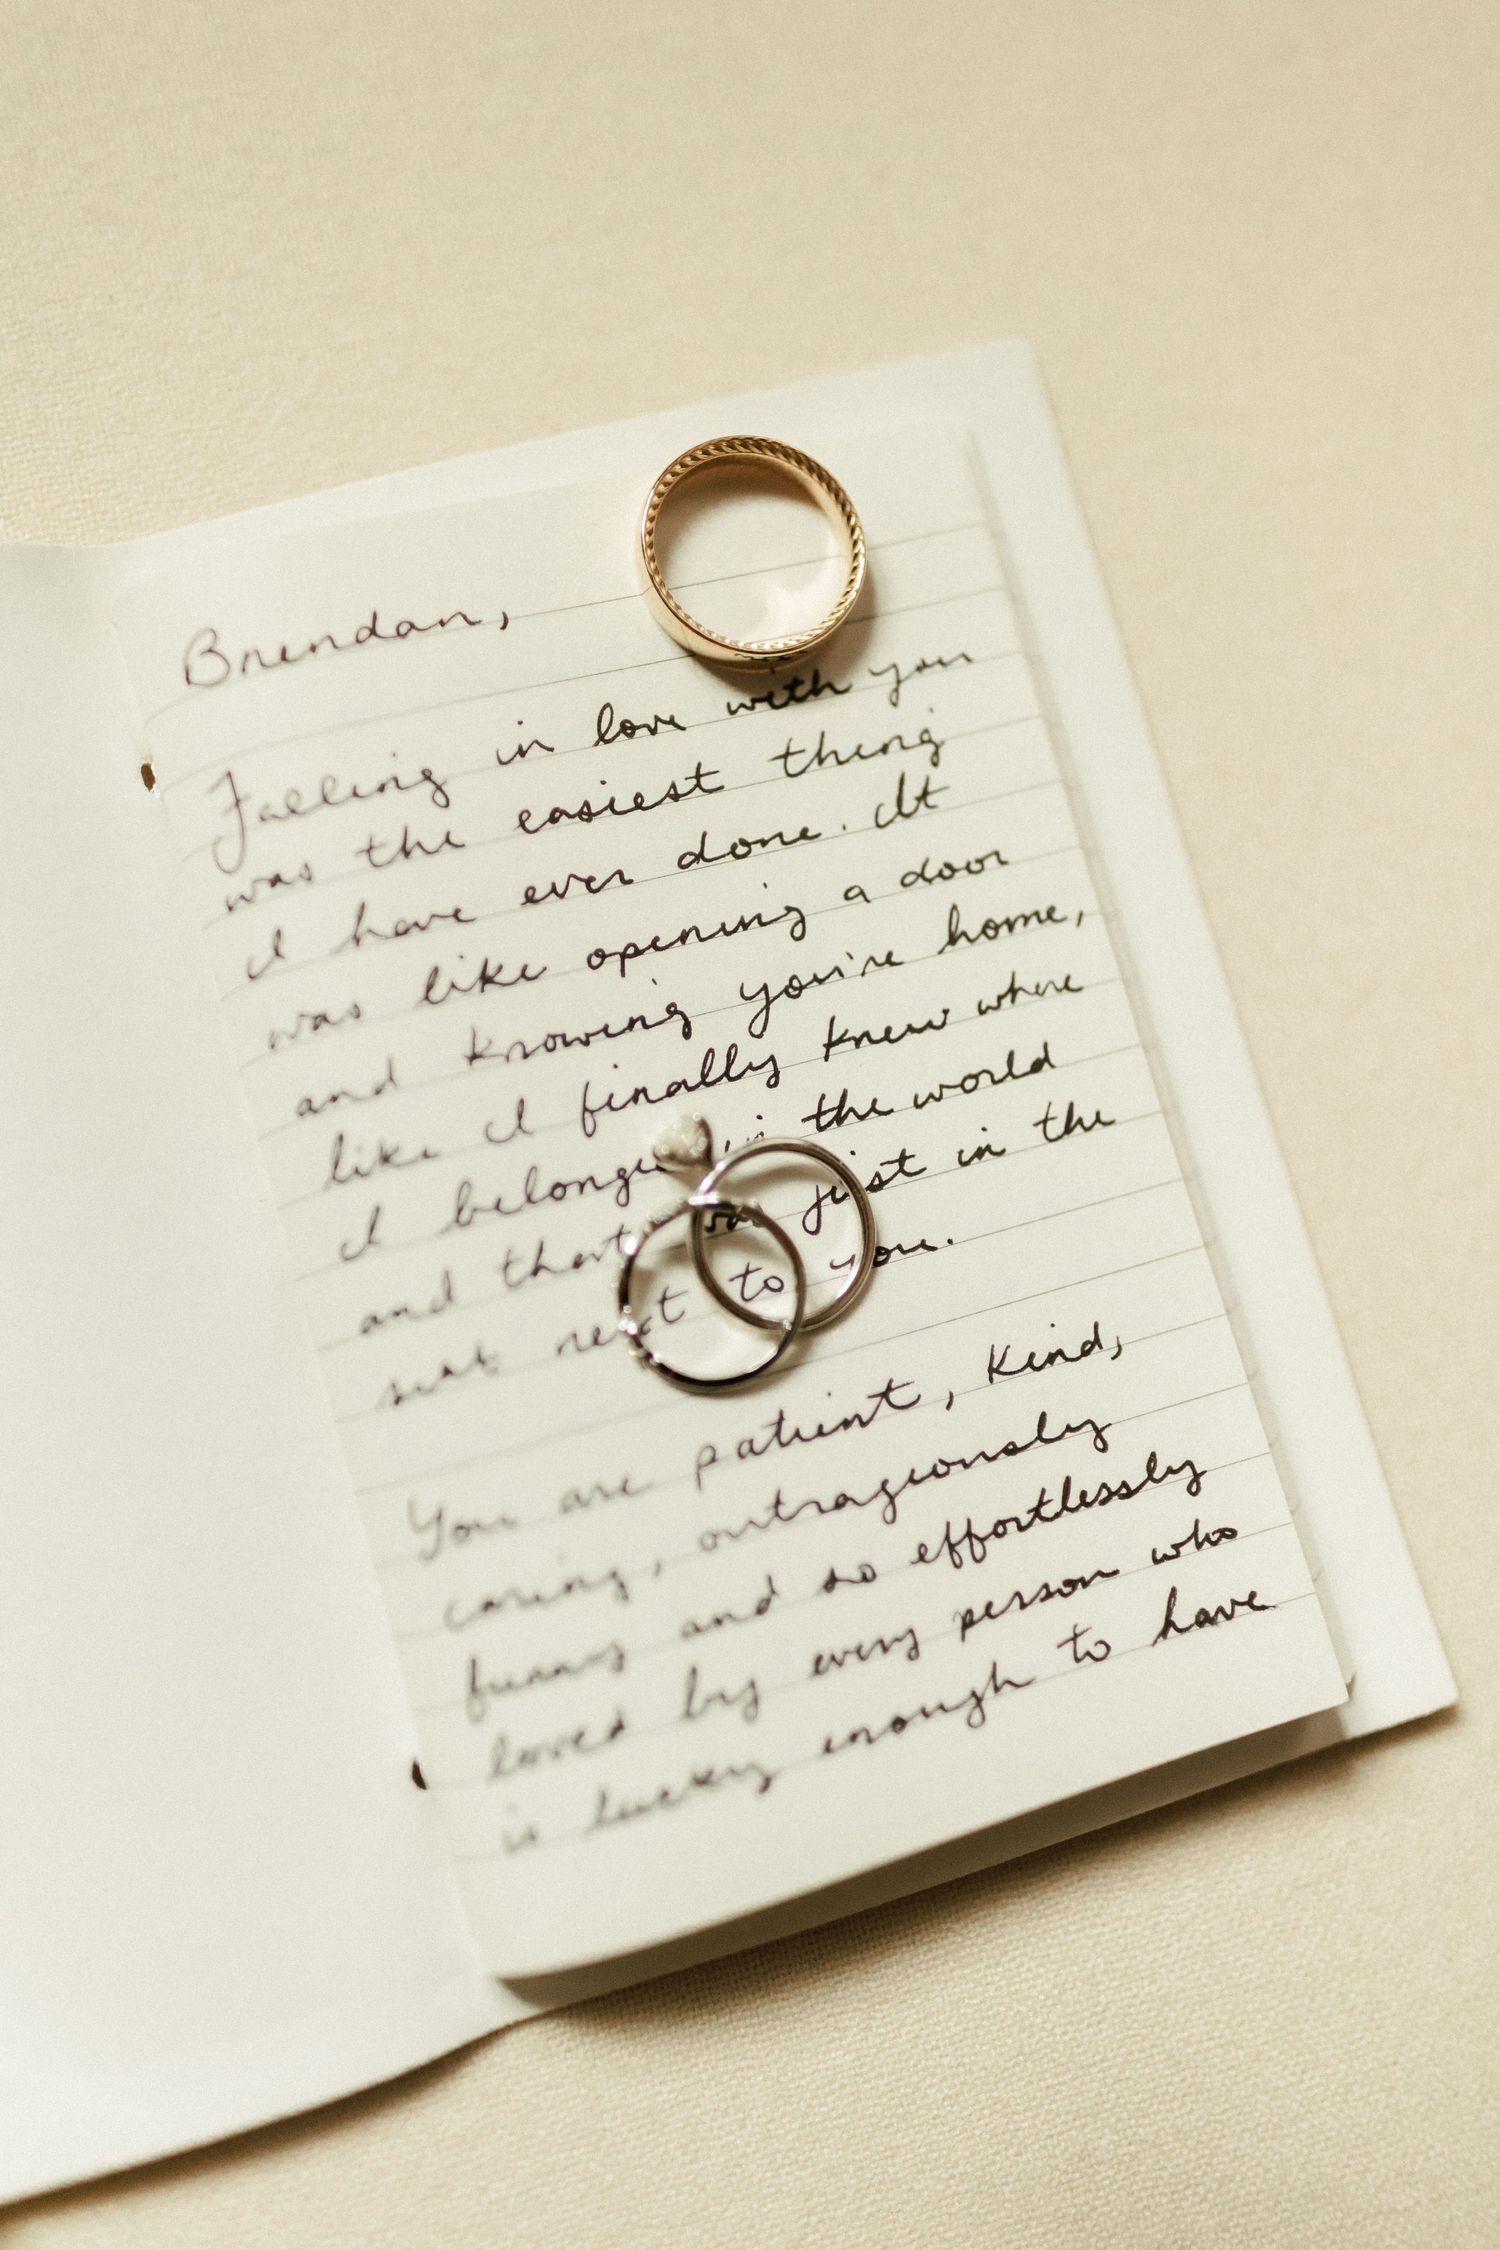 Brendan,
Falling in love with you
was the easiest thing
I have ever done. It
was like opening a door
and knowing you're home,
like I finally knew where
I belonged in the world
and that was just in the
seat next to you.
You are patient, kind,
caring, outrageously
funny and so effortlessly
loved by every person who
is lucky enough to have